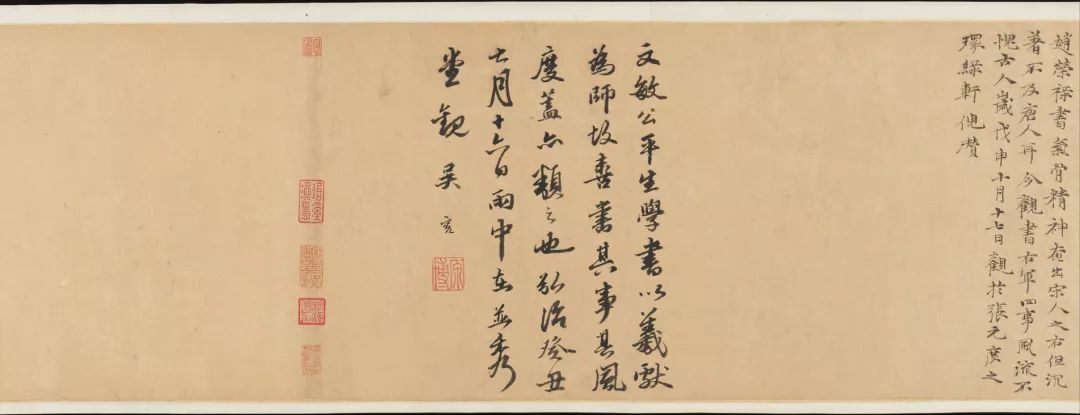 趙榮祿書氣骨精神並出宋人之右但沉
著不及唐人耳今觀書右軍四事風流不
愧古人歲戊申十月十七日觀於張元度之
環綠軒倪瓚
文敏公平生學書以羲獻
為師故喜書其事其風
度蓋亦類之也弘治癸丑
七月十六日雨中在並秀
堂觀吳寬
原博